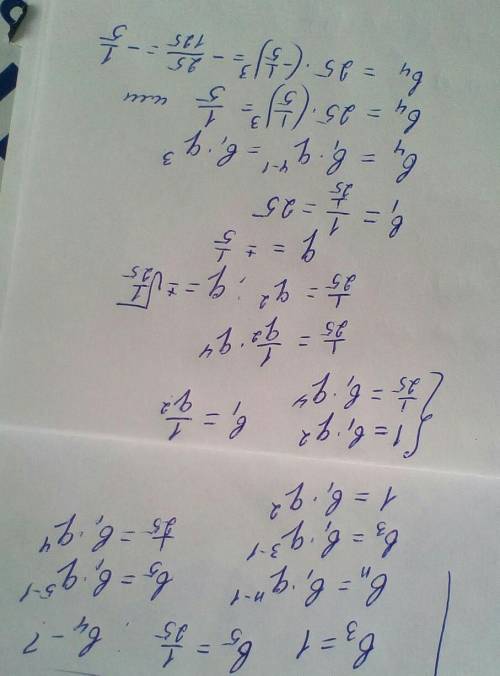 b₃ = 1   b₅ = 1/25 ; b₄ - ?
bₙ = b₁ · qⁿ⁻¹   b₅ = b₁ · q⁵⁻¹
b₃ = b₁ · q³⁻¹   1/25 = b₁ · q⁴
1 = b₁ · q²
{ 1 = b₁ · q²   b₁ = 1/q²
1/25 = b₁ · q⁴
1/25 = 1/q² · q⁴
1/25 = q² ; q = ±√(1/25)
q = ± 1/5
b₁ = 1/(1/25) = 25
b₄ = b₁ · q⁴⁻¹ = b₁ · q³
b₄ = 25 · (1/5)³ = 1/5 или
b₄ = 25 · (-1/5)³ = - 25/125 = - 1/5